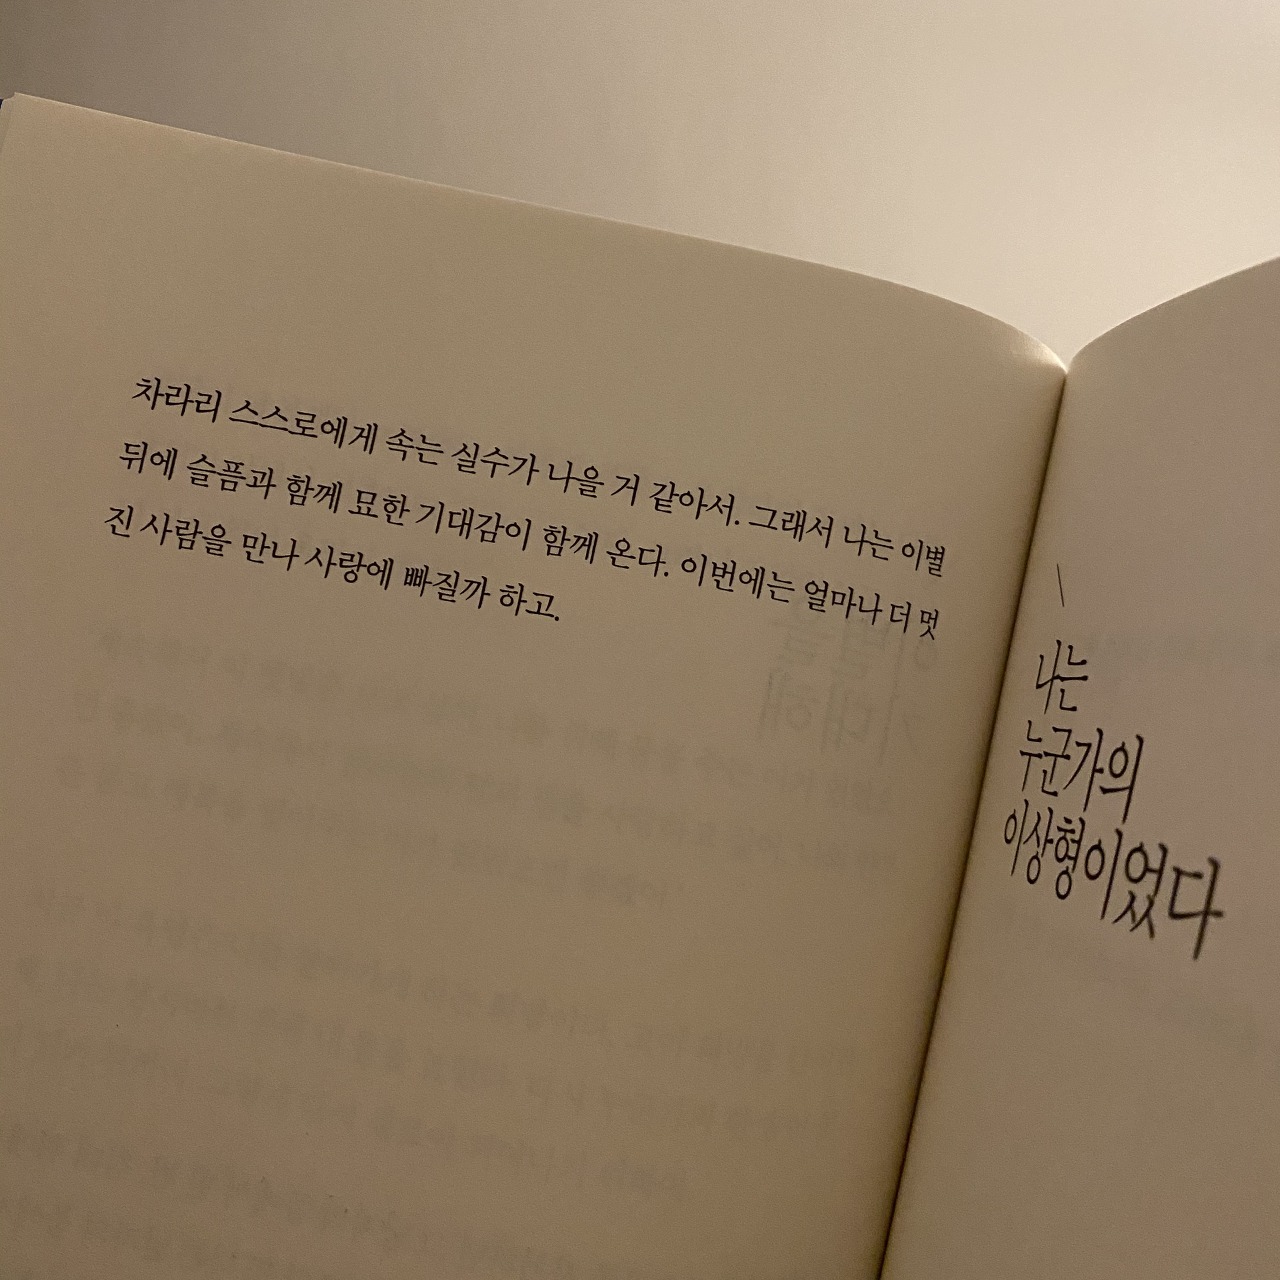 차라리 스스로에게 속는 실수가 나을 거 같아서. 그래서 나는 이별
뒤에 슬픔과 함께 묘한 기대감이 함께 온다. 이번에는 얼마나 더 멋
진 사람을 만나 사랑에 빠질까 하고.
나는
누군가의
이상형이었다